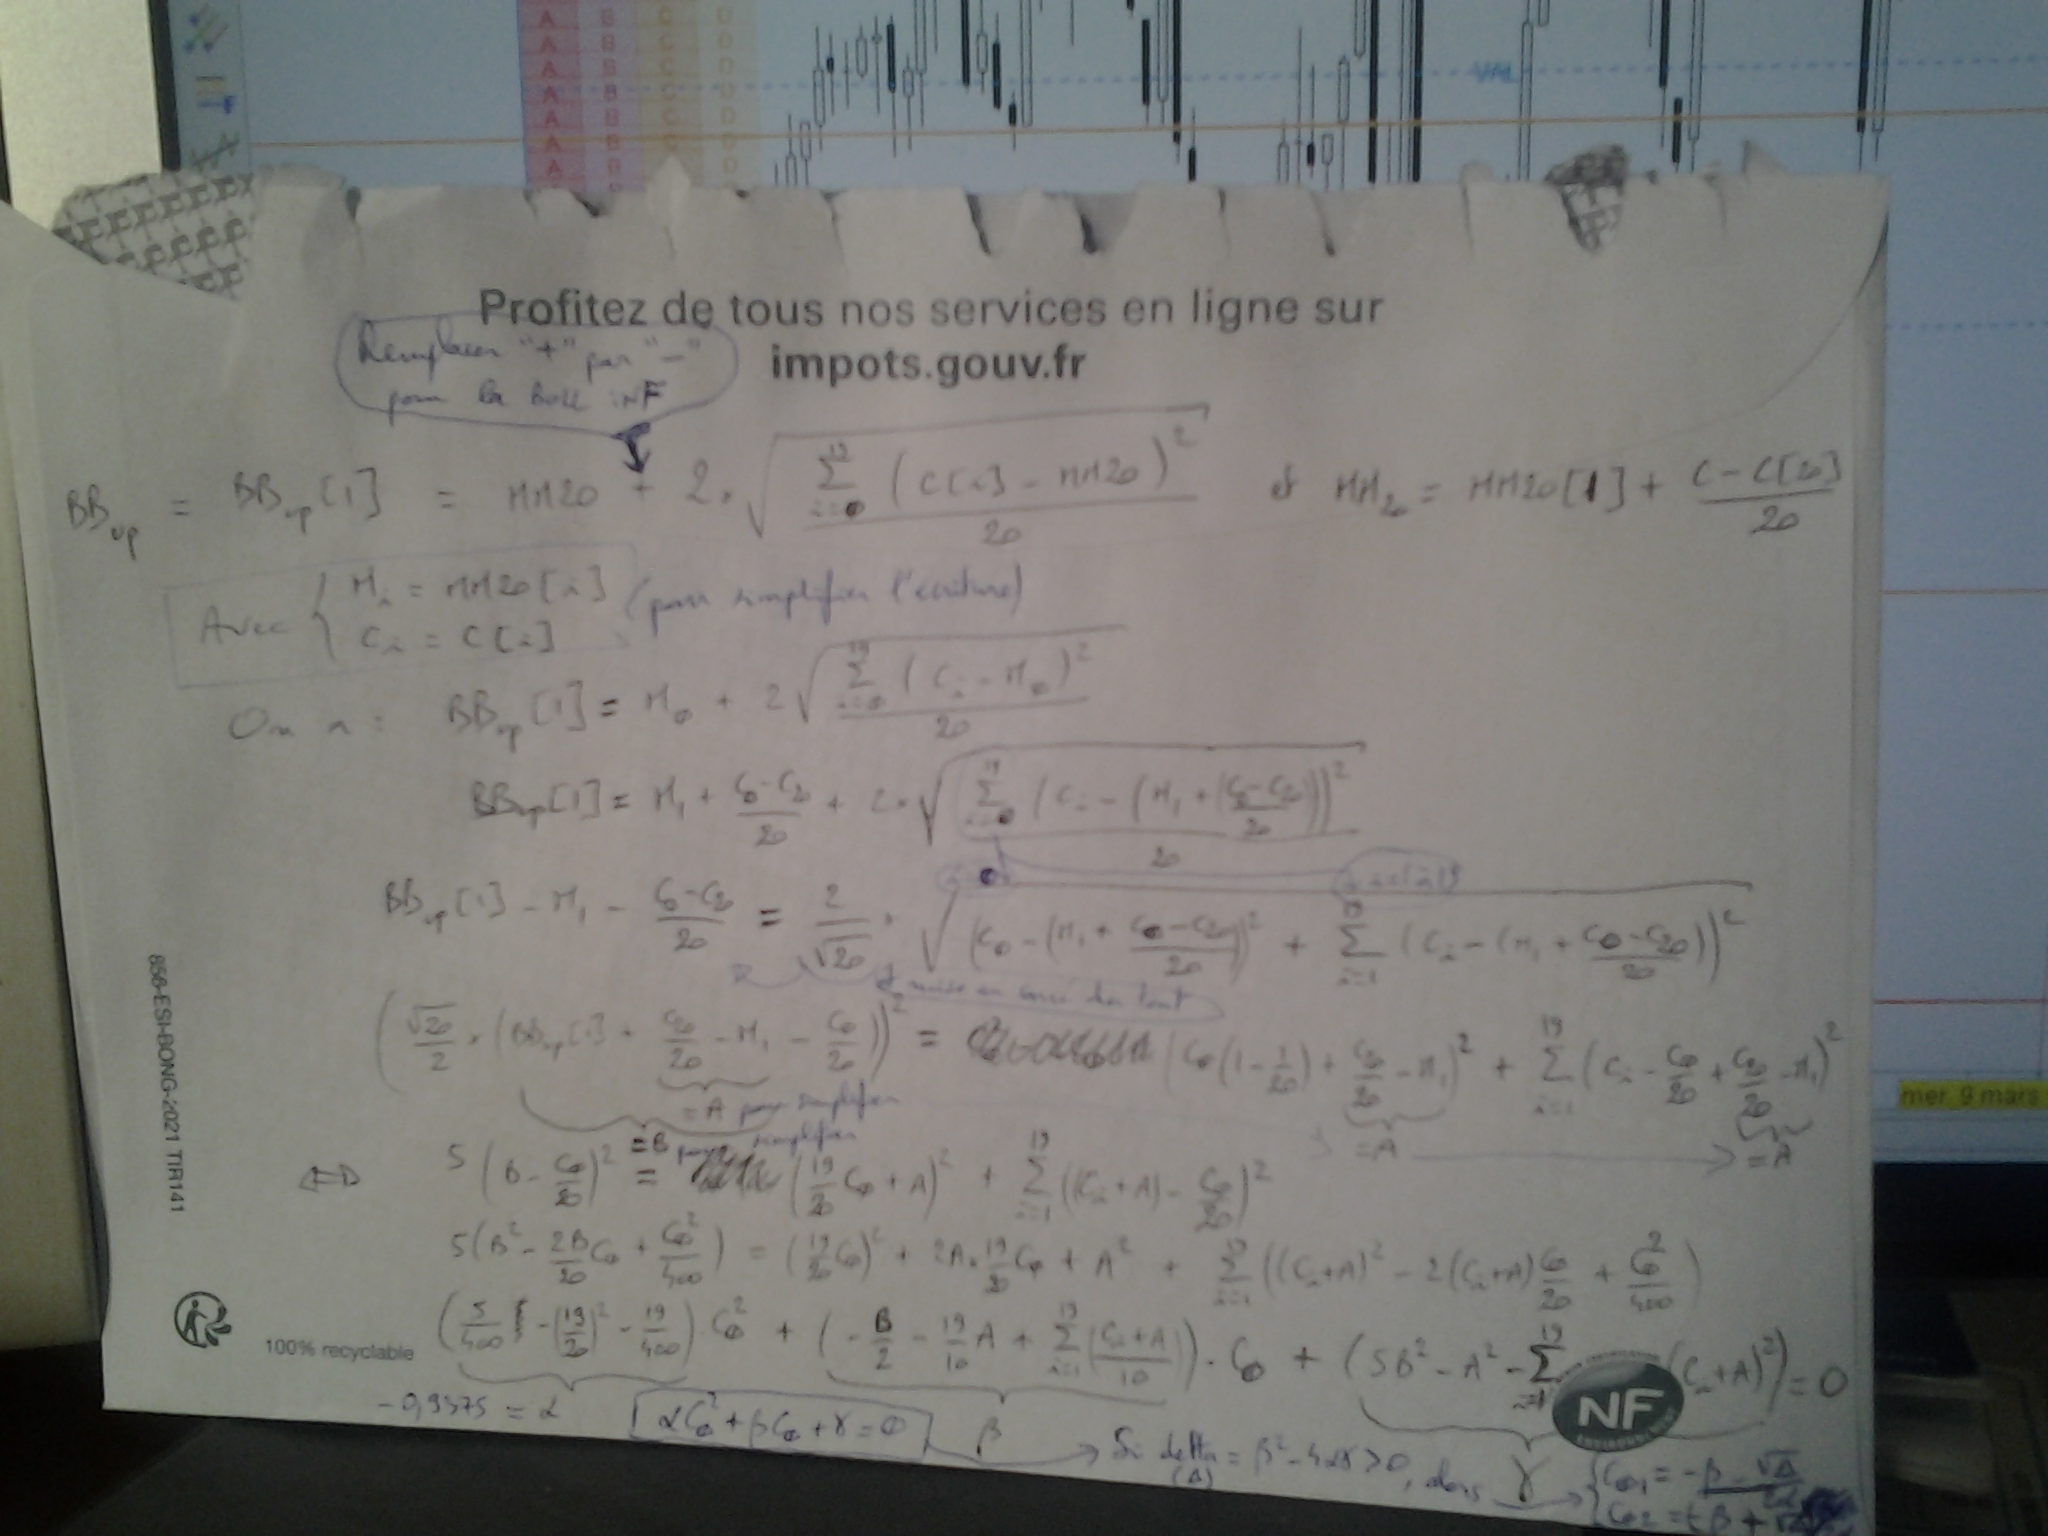 A B C D
A B C D
A B C D
A B C D
A B C D
A B C D
A B C D
VAL
Profitez de tous nos services en ligne sur
impots.gouv.fr
Remplacer "+" par "-"
pour la Boll iNF
BB_up = BB_up[1] = MM20 + 2·√(Σ_{i=0}^{19} (C[i] - MM20)² / 20) et MM_20 = MM20[1] + (C - C[20])/20
Avec { M_i = MM20[i] (pour simplifier l'écriture)
C_i = C[i]
On a : BB_up[1] = M_0 + 2√(Σ_{i=0}^{19} (C_i - M_0)² / 20)
BB_up[1] = M_1 + (C_0 - C_20)/20 + 2·√(Σ_{i=0}^{19} (C_i - (M_1 + (C_0 - C_20)/20))² / 20)
BB_up[1] - M_1 - (C_0 - C_20)/20 = 2/√20 · √((C_0 - (M_1 + (C_0 - C_20)/20))² + Σ_{i=1}^{19} (C_i - (M_1 + (C_0 - C_20)/20))²)
et mise au carré du tout
(√20/2 · (BB_up[1] + C_20/20 - M_1 - C_0/20))² = (C_0(1 - 1/20) + C_20/20 - M_1)² + Σ_{i=1}^{19} (C_i - C_0/20 + C_20/20 - M_1)²
= A pour simplifier
= B pour simplifier
= A
= A
⇔ 5(B - C_0/20)² = (19/20 C_0 + A)² + Σ_{i=1}^{19} ((C_i + A) - C_0/20)²
5(B² - 2B/20 C_0 + C_0²/400) = (19/20 C_0)² + 2A·19/20 C_0 + A² + Σ_{i=1}^{19} ((C_i + A)² - 2(C_i + A) C_0/20 + C_0²/400)
(5/400 - (19/20)² - 19/400)·C_0² + (-B/2 - 19/10 A + Σ_{i=1}^{19} (C_i + A)/10)·C_0 + (5B² - A² - Σ_{i=1}^{19} (C_i + A)²) = 0
-0,9375 = α
αC_0² + βC_0 + γ = 0
β
Si delta = β² - 4αγ > 0, alors
(Δ)
γ
856-ESI-BONG-2021 TIR141
100% recyclable
NF
mer. 9 mars